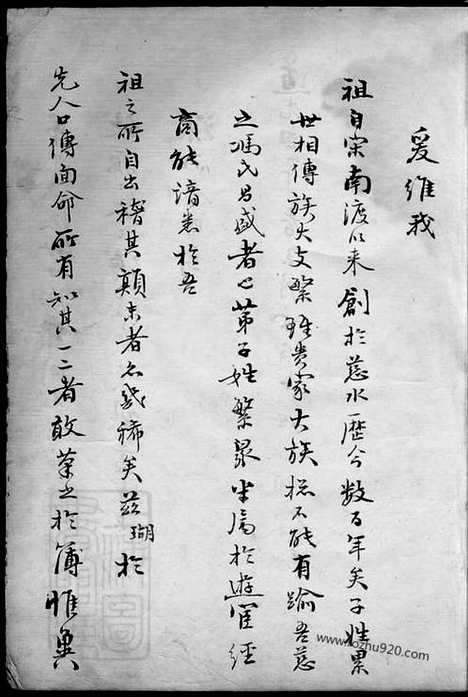 爰維我
祖自宋南渡以来創於慈水歷今數百年矣子姓累
世相傳族大支繁雖貴家大族摠不能有踰吾慈
之馮氏昌盛者也第子姓繁衆半屬於遊宦經
商能諳悉於吾
祖之所自出稽其顛末者亦幾稀矣茲瑚於
先人口傳面命所有知其一二者敢筆之於簿惟冀
www.kozhu920.com